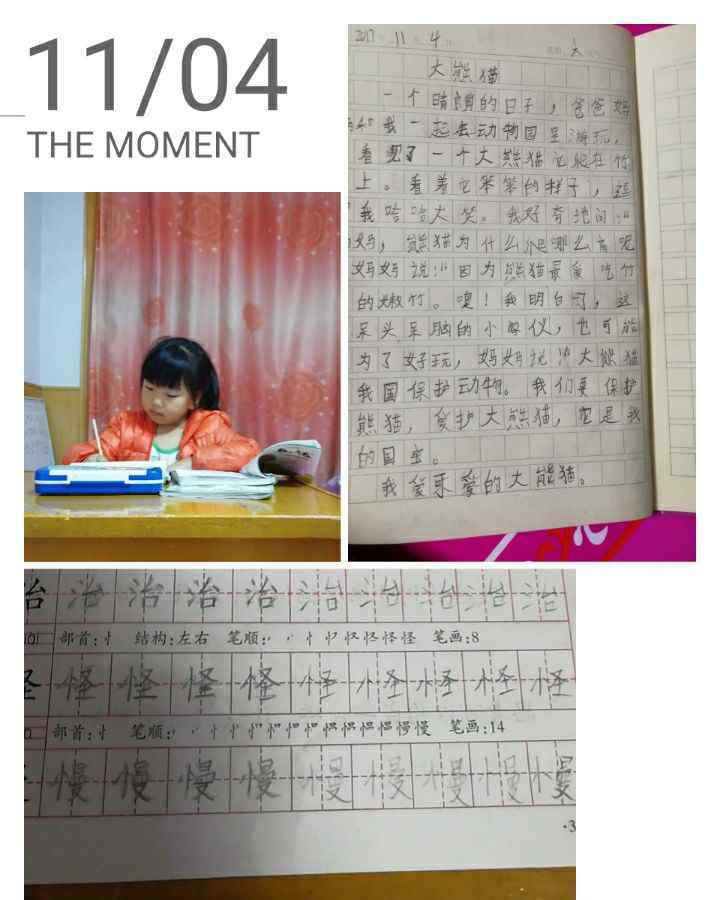 11/04
THE MOMENT
2017 11 4 六
大熊猫
一个晴朗的日子，爸爸妈
和我一起去动物园里游玩，
看见了一个大熊猫它爬在竹
上。看着它笨笨的样子，逗
我哈哈大笑。我好奇地问:“
妈，熊猫为什么爬那么高呢
妈妈说:“因为熊猫最爱吃竹
的嫩竹。噢！我明白了，这
呆头呆脑的小家伙，也可能
为了好玩，妈妈说“大熊猫
我国保护动物。我们要保护
熊猫，爱护大熊猫，它是我
的国宝。
我爱可爱的大熊猫。
治 治 治 治 治 治 治 治 治 治
部首:忄 结构:左右 笔顺: 笔画:8
怪 怪 怪 怪 怪 怪 怪 怪 怪 怪
部首:忄 笔顺: 笔画:14
慢 慢 慢 慢 慢 慢 慢 慢 慢
·3